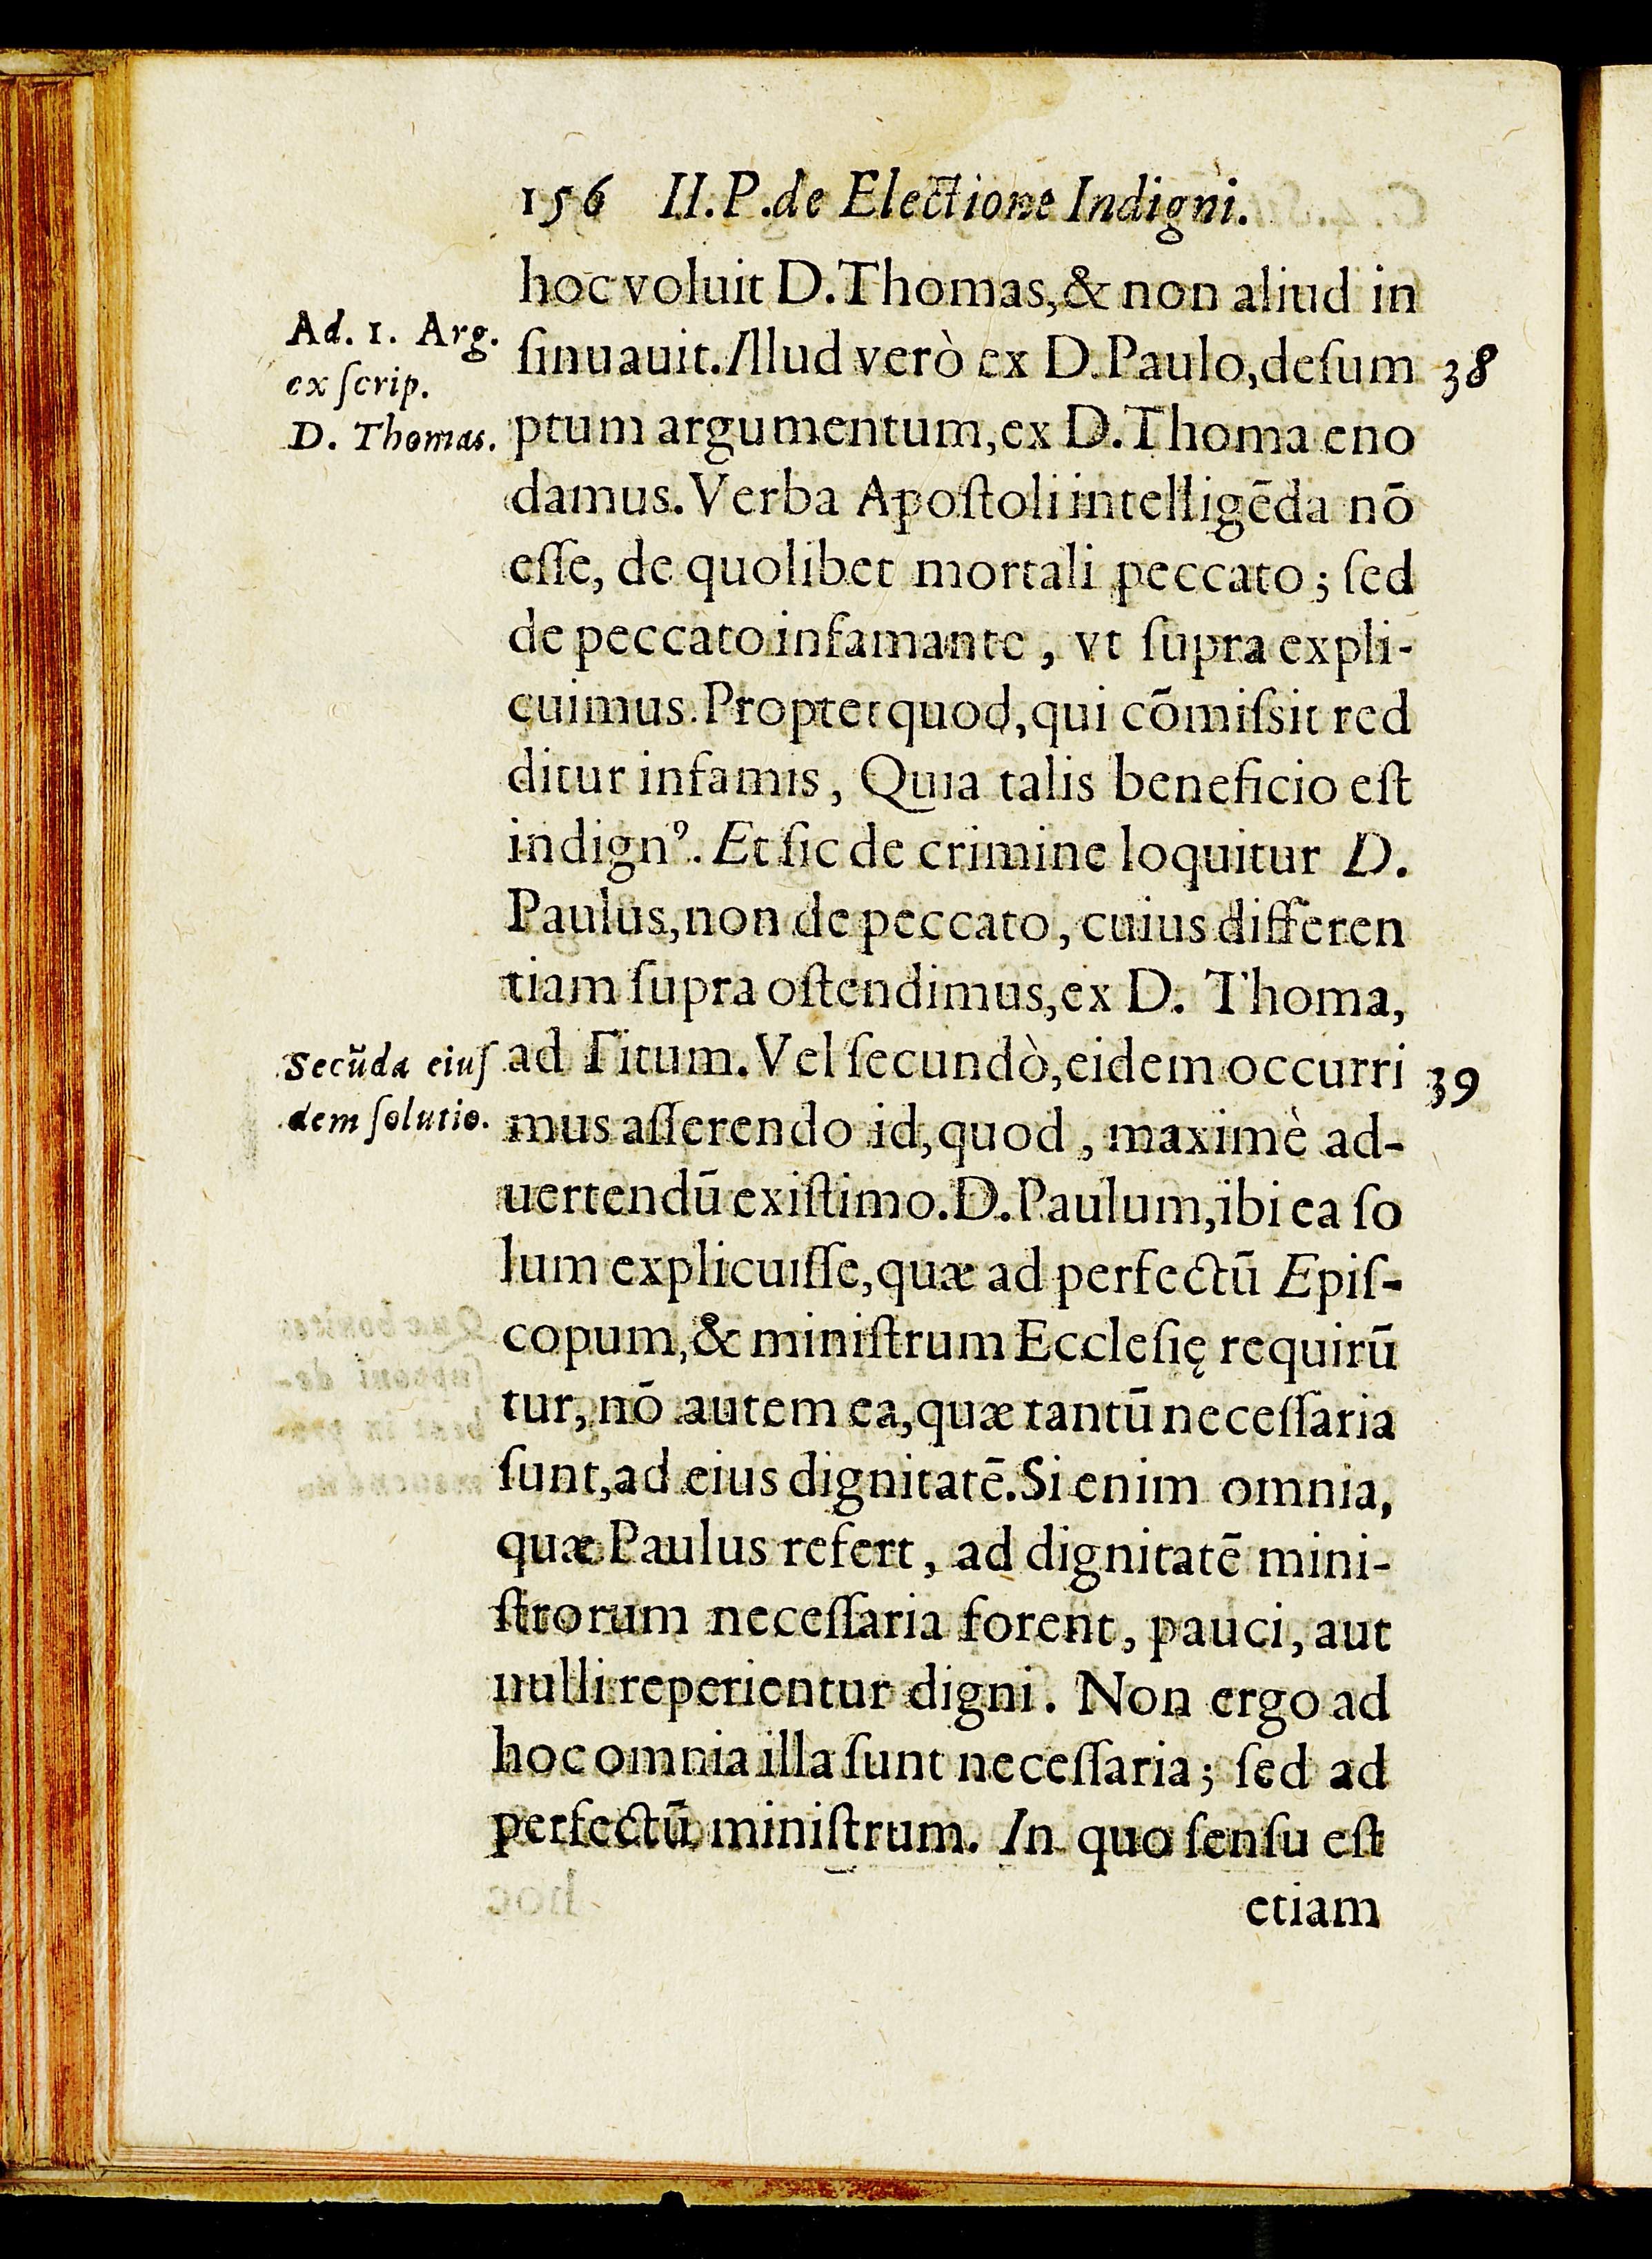 156 II.P.de Electione Indigni.
hoc voluit D.Thomas,& non aliud in
Ad. 1. Arg.
ex ſcrip.
D. Thomas.
ſinuauit.Illud verò ex D.Paulo,deſum
38
ptum argumentum,ex D.Thoma eno
damus.Verba Apoſtoli intelligēda nō
eſſe, de quolibet mortali peccato; ſed
de peccato infamante, vt ſupra expli-
cuimus.Propter quod,qui cōmiſsit red
ditur infamis, Quia talis beneficio eſt
indignꝰ. Et ſic de crimine loquitur D.
Paulus,non de peccato, cuius differen
tiam ſupra oſtendimus,ex D. Thoma,
Secūda eiuſ
dem ſolutio.
ad Titum.Vel ſecundò,eidem occurri
39
mus aſſerendo id,quod, maximè ad-
uertendū exiſtimo.D.Paulum,ibi ea ſo
lum explicuiſſe,quæ ad perfectū Epiſ-
copum,& miniſtrum Eccleſię requirū
tur, nō autem ea,quæ tantū neceſſaria
ſunt,ad eius dignitatē.Si enim omnia,
quæ Paulus refert, ad dignitatē mini-
ſtrorum neceſſaria forent, pauci, aut
nulli reperientur digni. Non ergo ad
hoc omnia illa ſunt neceſſaria; ſed ad
perfectū miniſtrum. In quo ſenſu eſt
etiam